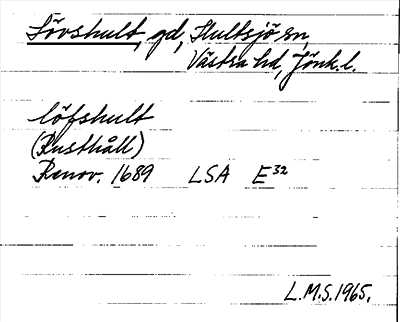 Lövshult, gd, Hultsjö sn,
Västra hd, Jönk. l.
löfshult
(Rusthåll)
Renov. 1689 LSA E32
L.M.S. 1965.